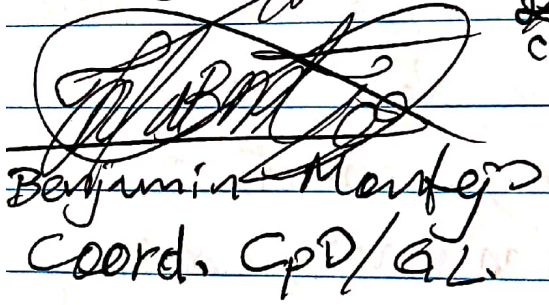 Benjumin Montejo
Coord. CpD/GL.